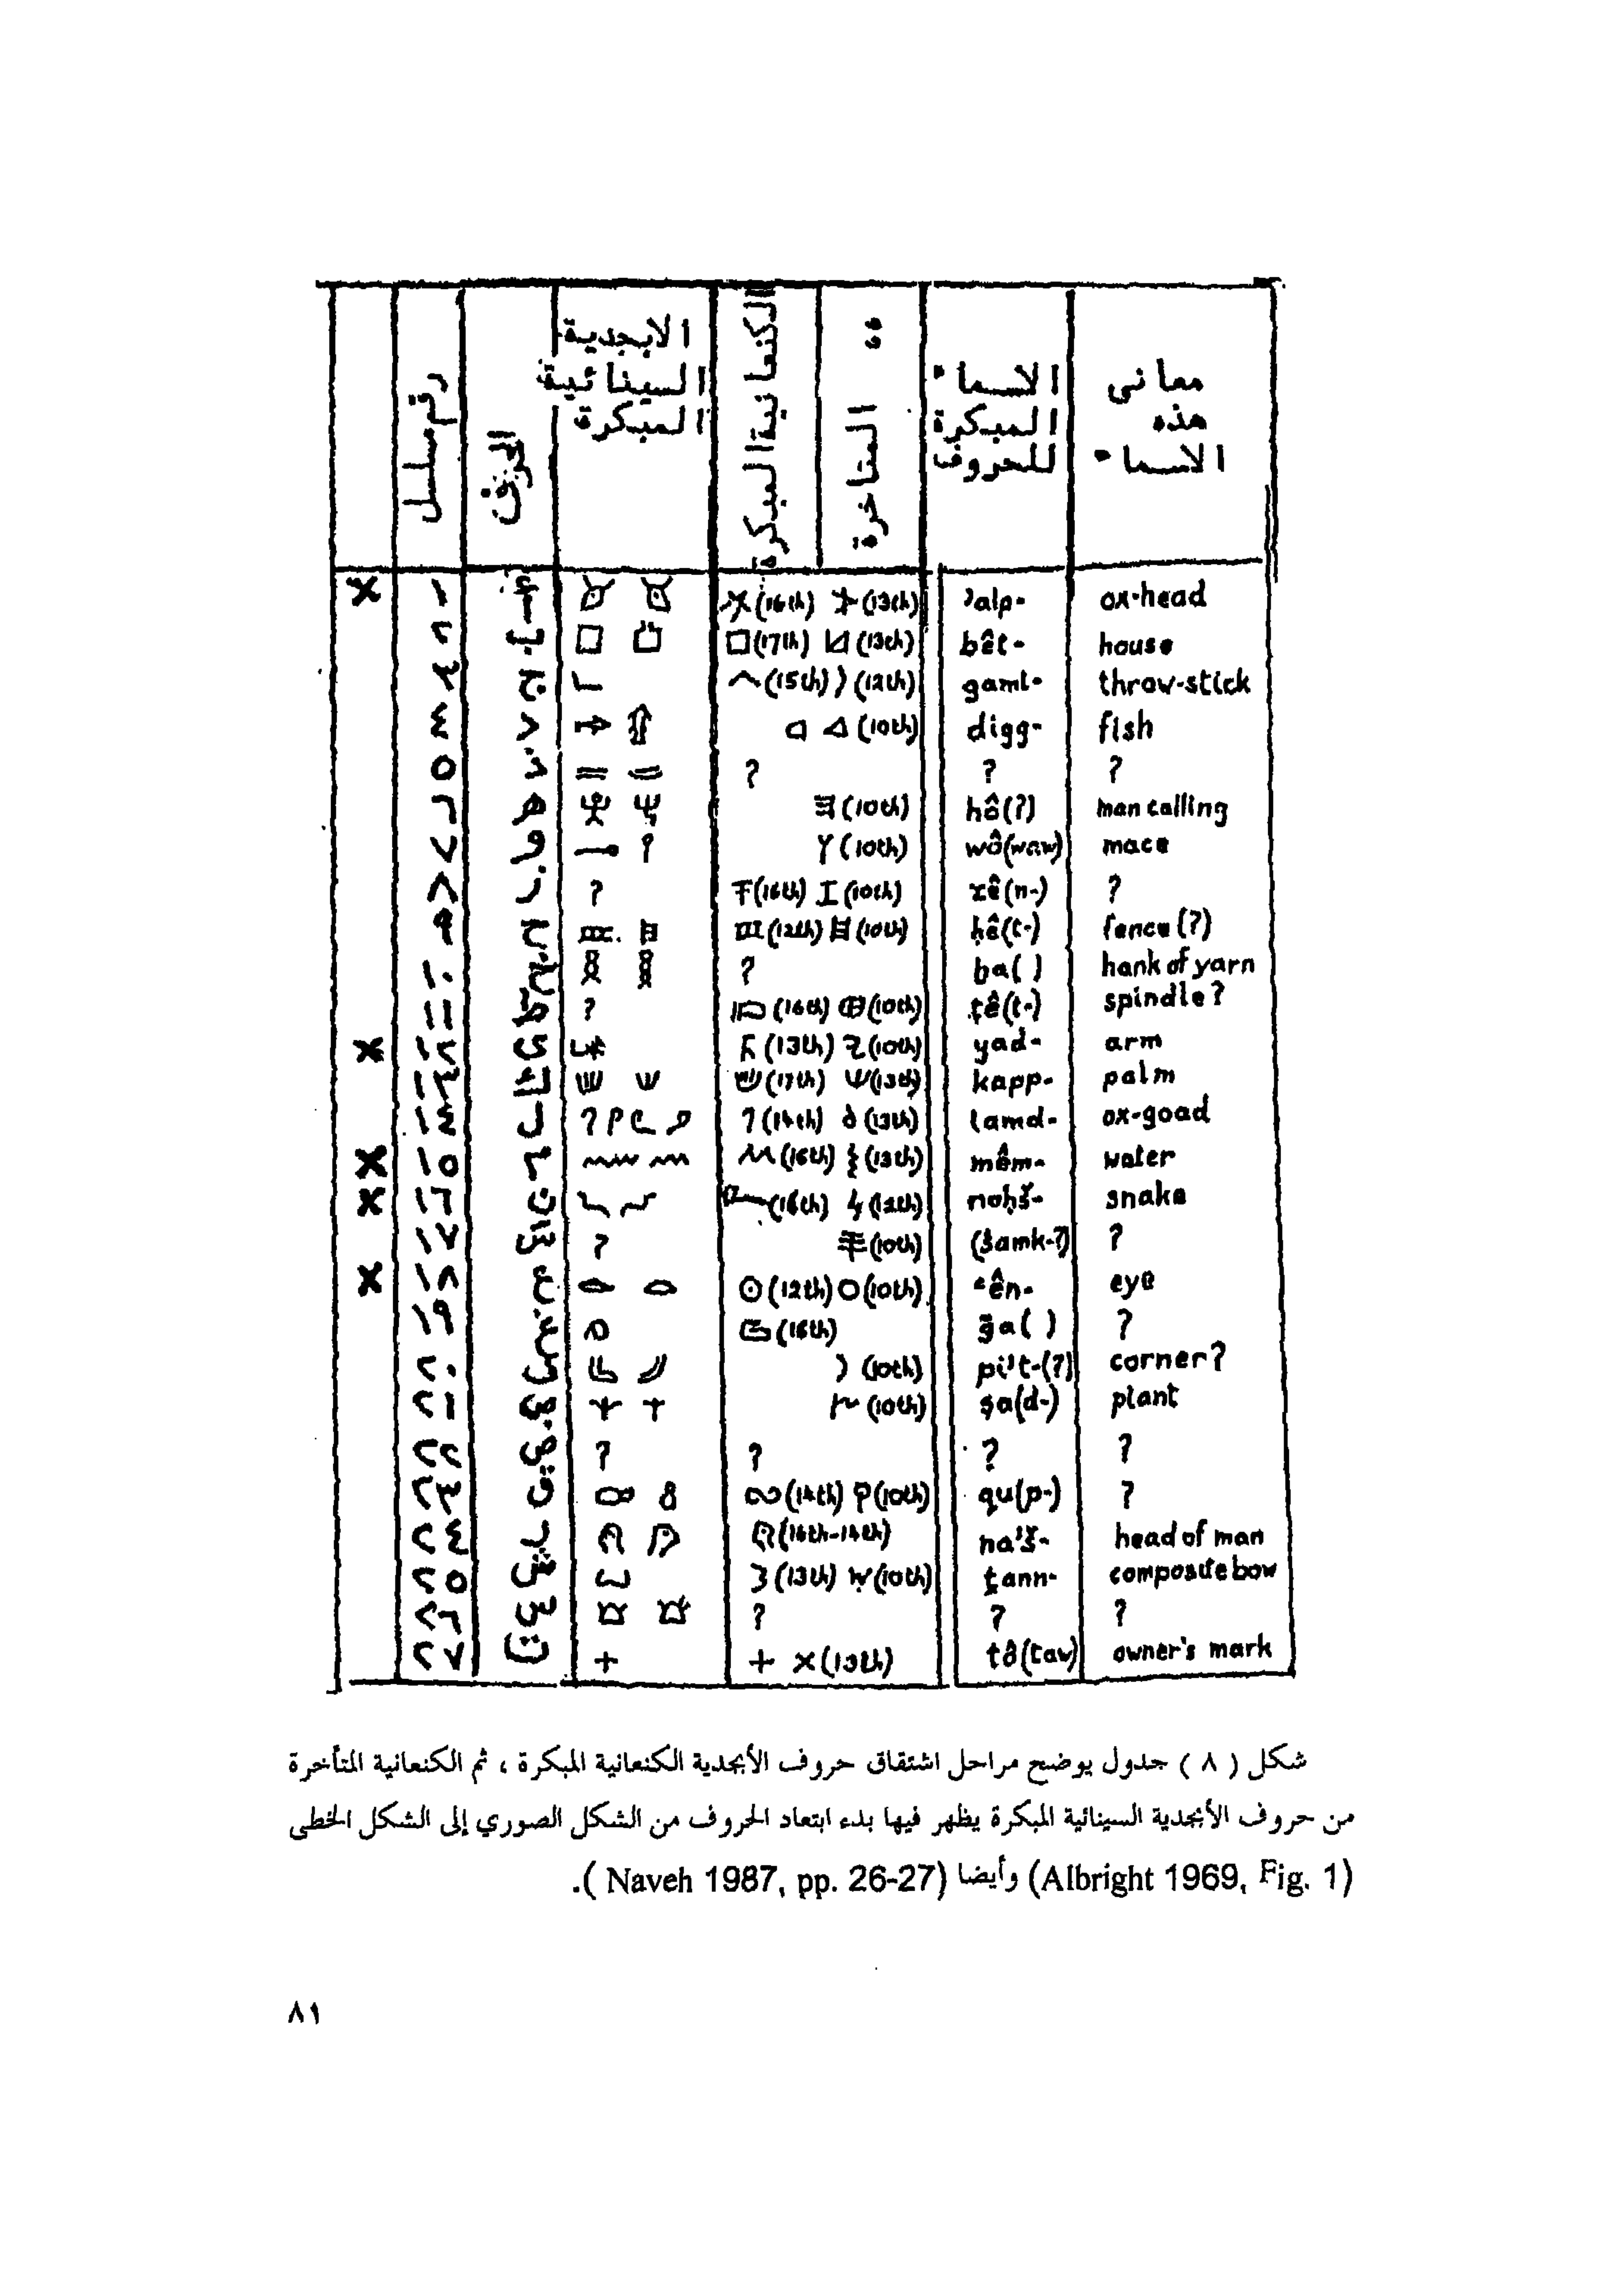 رقم مسلسل
الحرف
الابجدية السينائية المبكرة
الكنعانية المبكرة
" المتاخرة
الاسماء المبكرة للحروف
معانى هذه الاسماء
x ١ أ (16th) (13th) ʾalp- ox-head
٢ ب (17th) (13th) bêt- house
٣ ج (15th) (12th) gaml- throw-stick
٤ د (10th) digg- fish
٥ ذ ? ? ?
٦ هـ (10th) hô(?) man calling
٧ و (10th) wô(waw) mace
٨ ز ? (16th) (10th) zê(n-) ?
٩ ح (12th) (10th) ḥê(t-) fence(?)
١٠ خ ? ba( ) hank of yarn
١١ ط ? (16th) (10th) ṭê(t-) spindle?
x ١٢ ى (13th) (10th) yad- arm
١٣ ك (17th) (13th) kapp- palm
١٤ ل (14th) (13th) lamd- ox-goad
x ١٥ م (16th) (13th) mêm- water
x ١٦ ن (16th) (12th) noḥš- snake
١٧ ? (10th) (samk-?) ?
x ١٨ ع (12th) (10th) ʿên- eye
١٩ غ (16th) ga( ) ?
٢٠ (10th) pi't-(?) corner?
٢١ ص (10th) ṣa(d-) plant
٢٢ ض ? ? ? ?
٢٣ ق (14th) (10th) qu(p-) ?
٢٤ ر (16th-14th) na'š- head of man
٢٥ ش (13th) (10th) ṯann- composite bow
٢٦ س ? ? ?
٢٧ ت + + x (13th) tô(taw) owner's mark
شكل ( ٨ ) جدول يوضح مراحل اشتقاق حروف الأبجدية الكنعانية المبكرة ، ثم الكنعانية المتأخرة
من حروف الأبجدية السينائية المبكرة يظهر فيها بدء ابتعاد الحروف من الشكل الصوري إلى الشكل الخطى
(Albright 1969, Fig. 1) وأيضا (Naveh 1987, pp. 26-27 ).
٨١